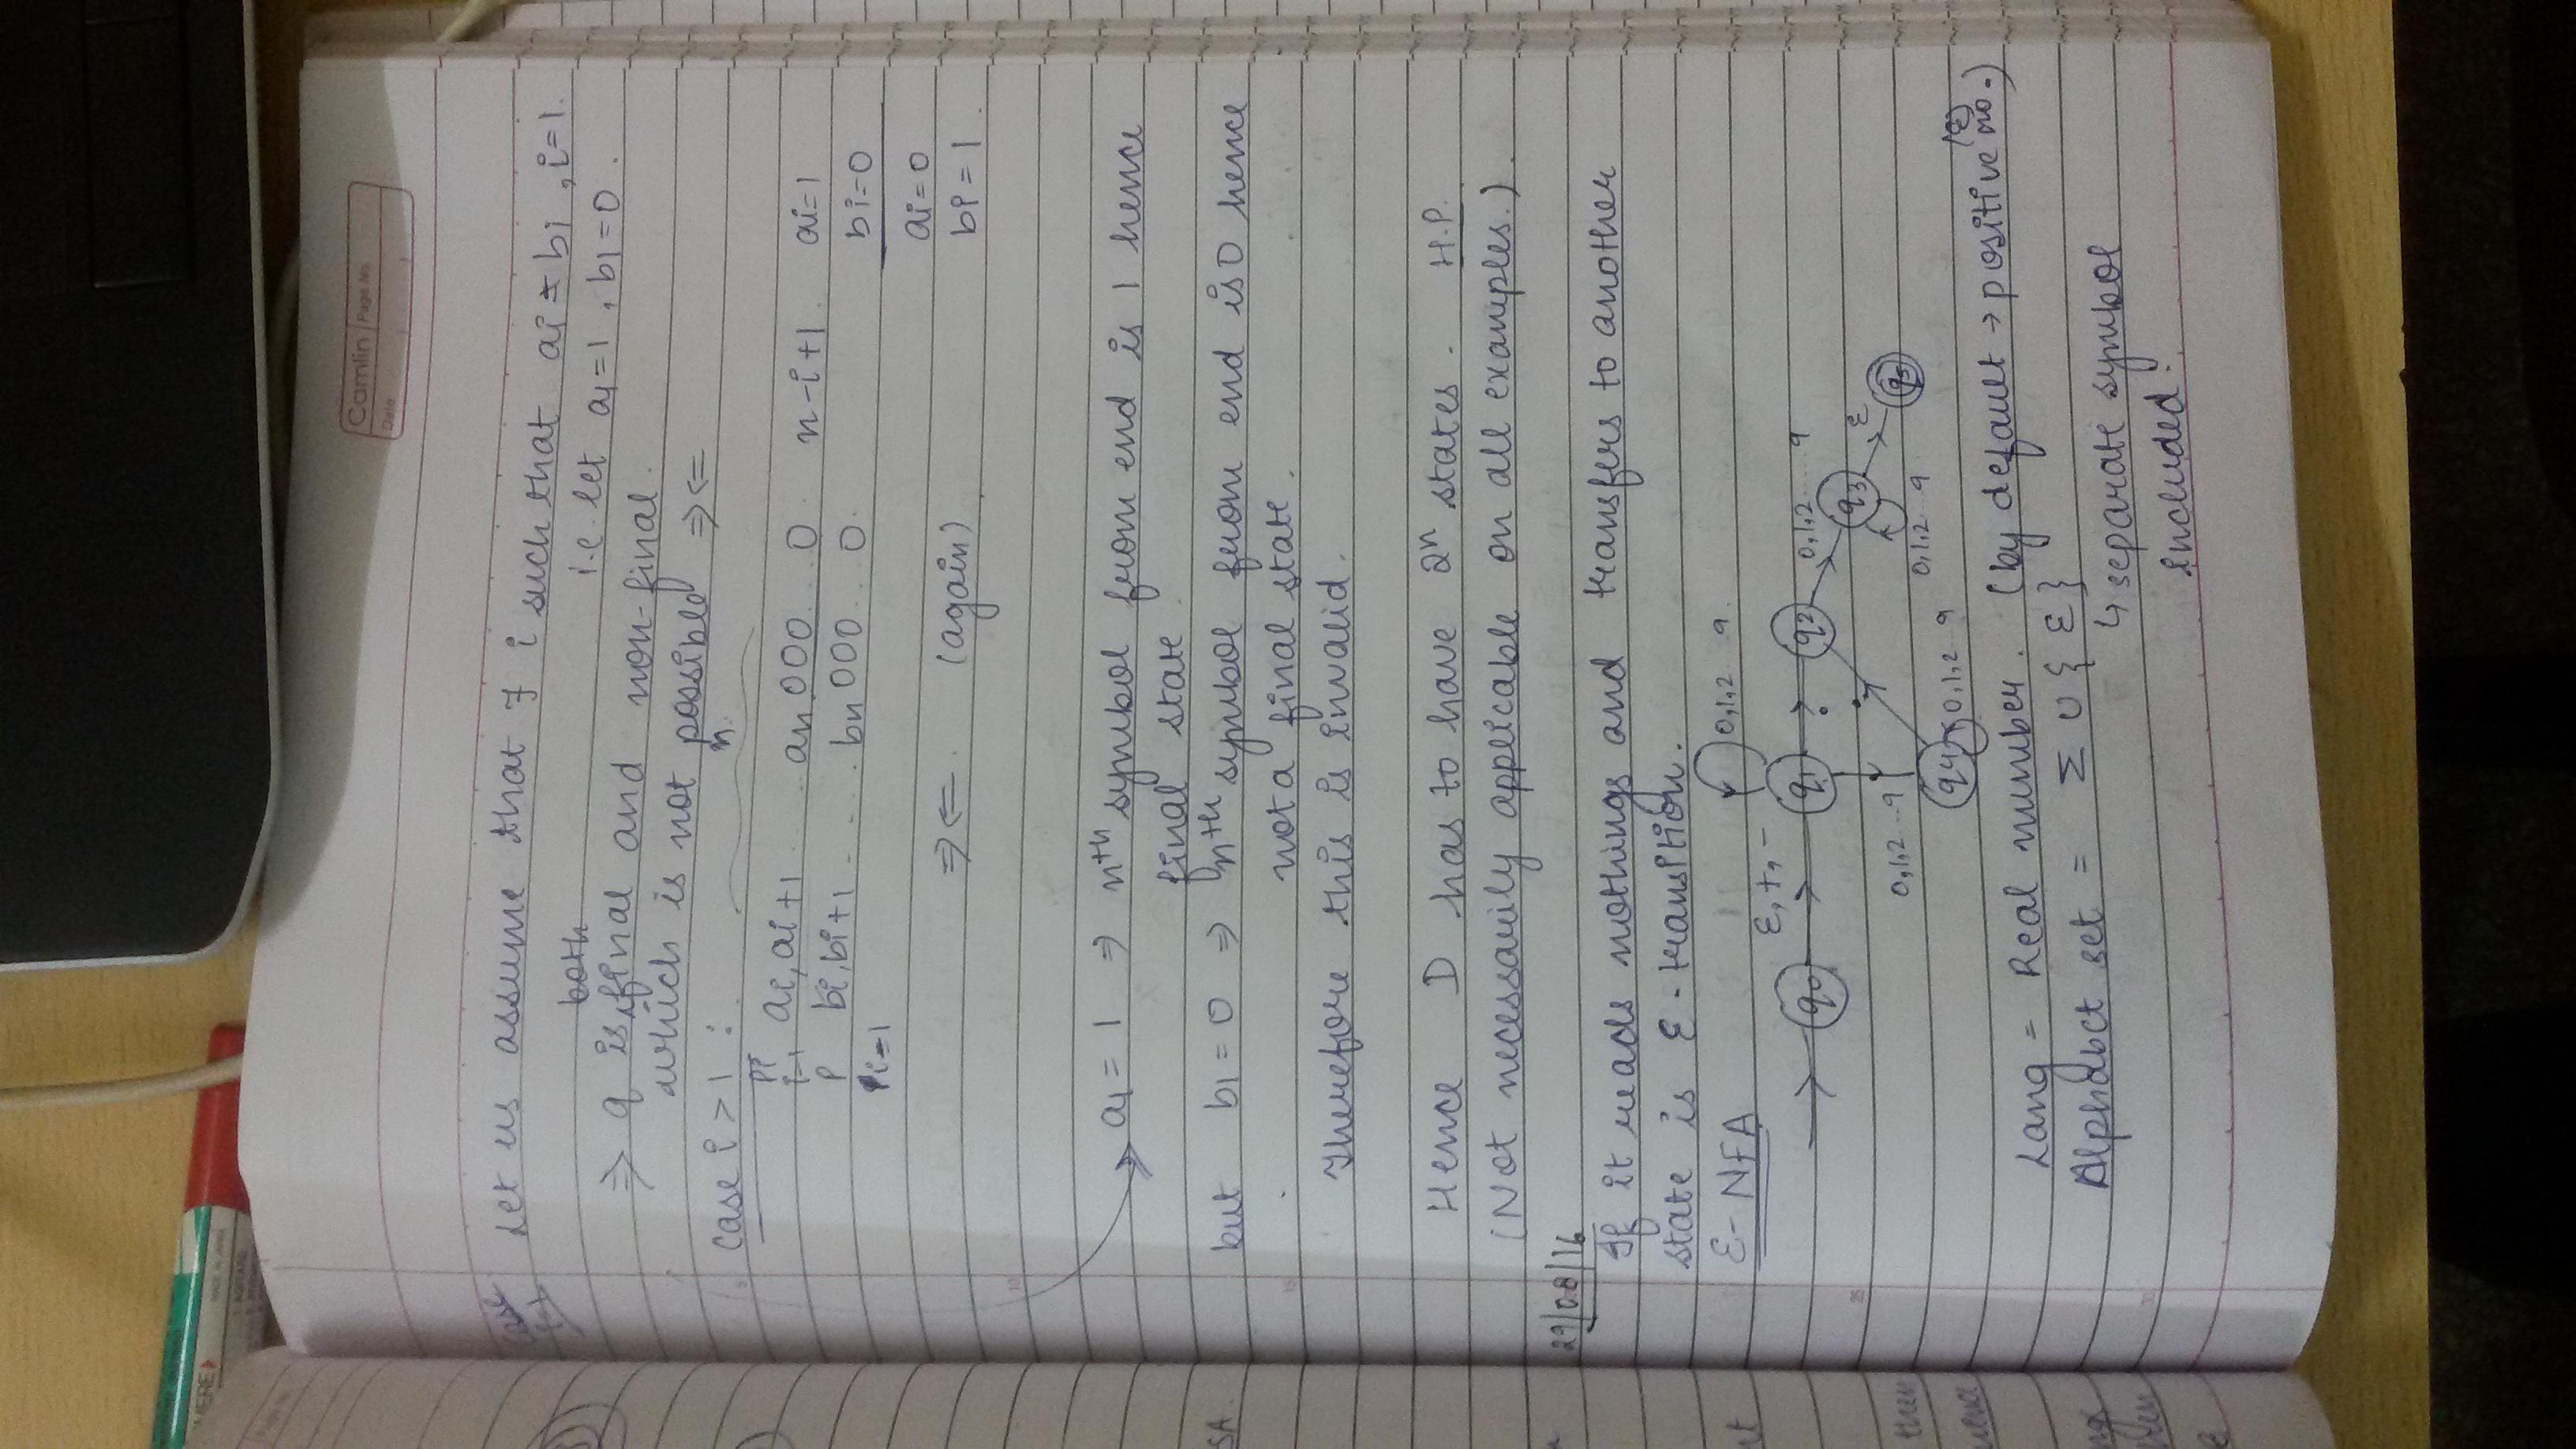 MADE IN JAPAN
Camlin Page No.
Date
Case
i=1
Let us assume that ∃ i such that ai ≠ bi , i=1.
i.e. let a1=1 , b1=0 .
both
⇒ q is final and non-final.
which is not possible ⇒⇐
Case i > 1 :
n.
ai, ai+1 .... an 000... 0 n-i+1. ai=1
bi, bi+1 ..... bn 000... 0. bi=0
i-1
ai=0
⇒⇐ (again) bi = 1 .
a1 = 1 ⇒ nth symbol from end is 1 hence
final state
but b1 = 0 ⇒ nth symbol from end is 0 hence
not a final state.
Therefore this is invalid.
Hence D has to have 2ⁿ states. H.P.
(Not necessarily applicable on all examples.)
29/08/16
If it reads nothings and transfers to another
state is ε-transition.
ε- NFA
0,1,2...9.
ε, +, -
q0 q1 . q2 0,1,2....9
. q3 ε
0,1,2...9 q5
0,1,2...9
q4 0,1,2...9
(ε)
Lang = Real number. (by default → positive no.)
Alphabet set = Σ ∪ { ε }
↳ separate symbol
included.
SA.